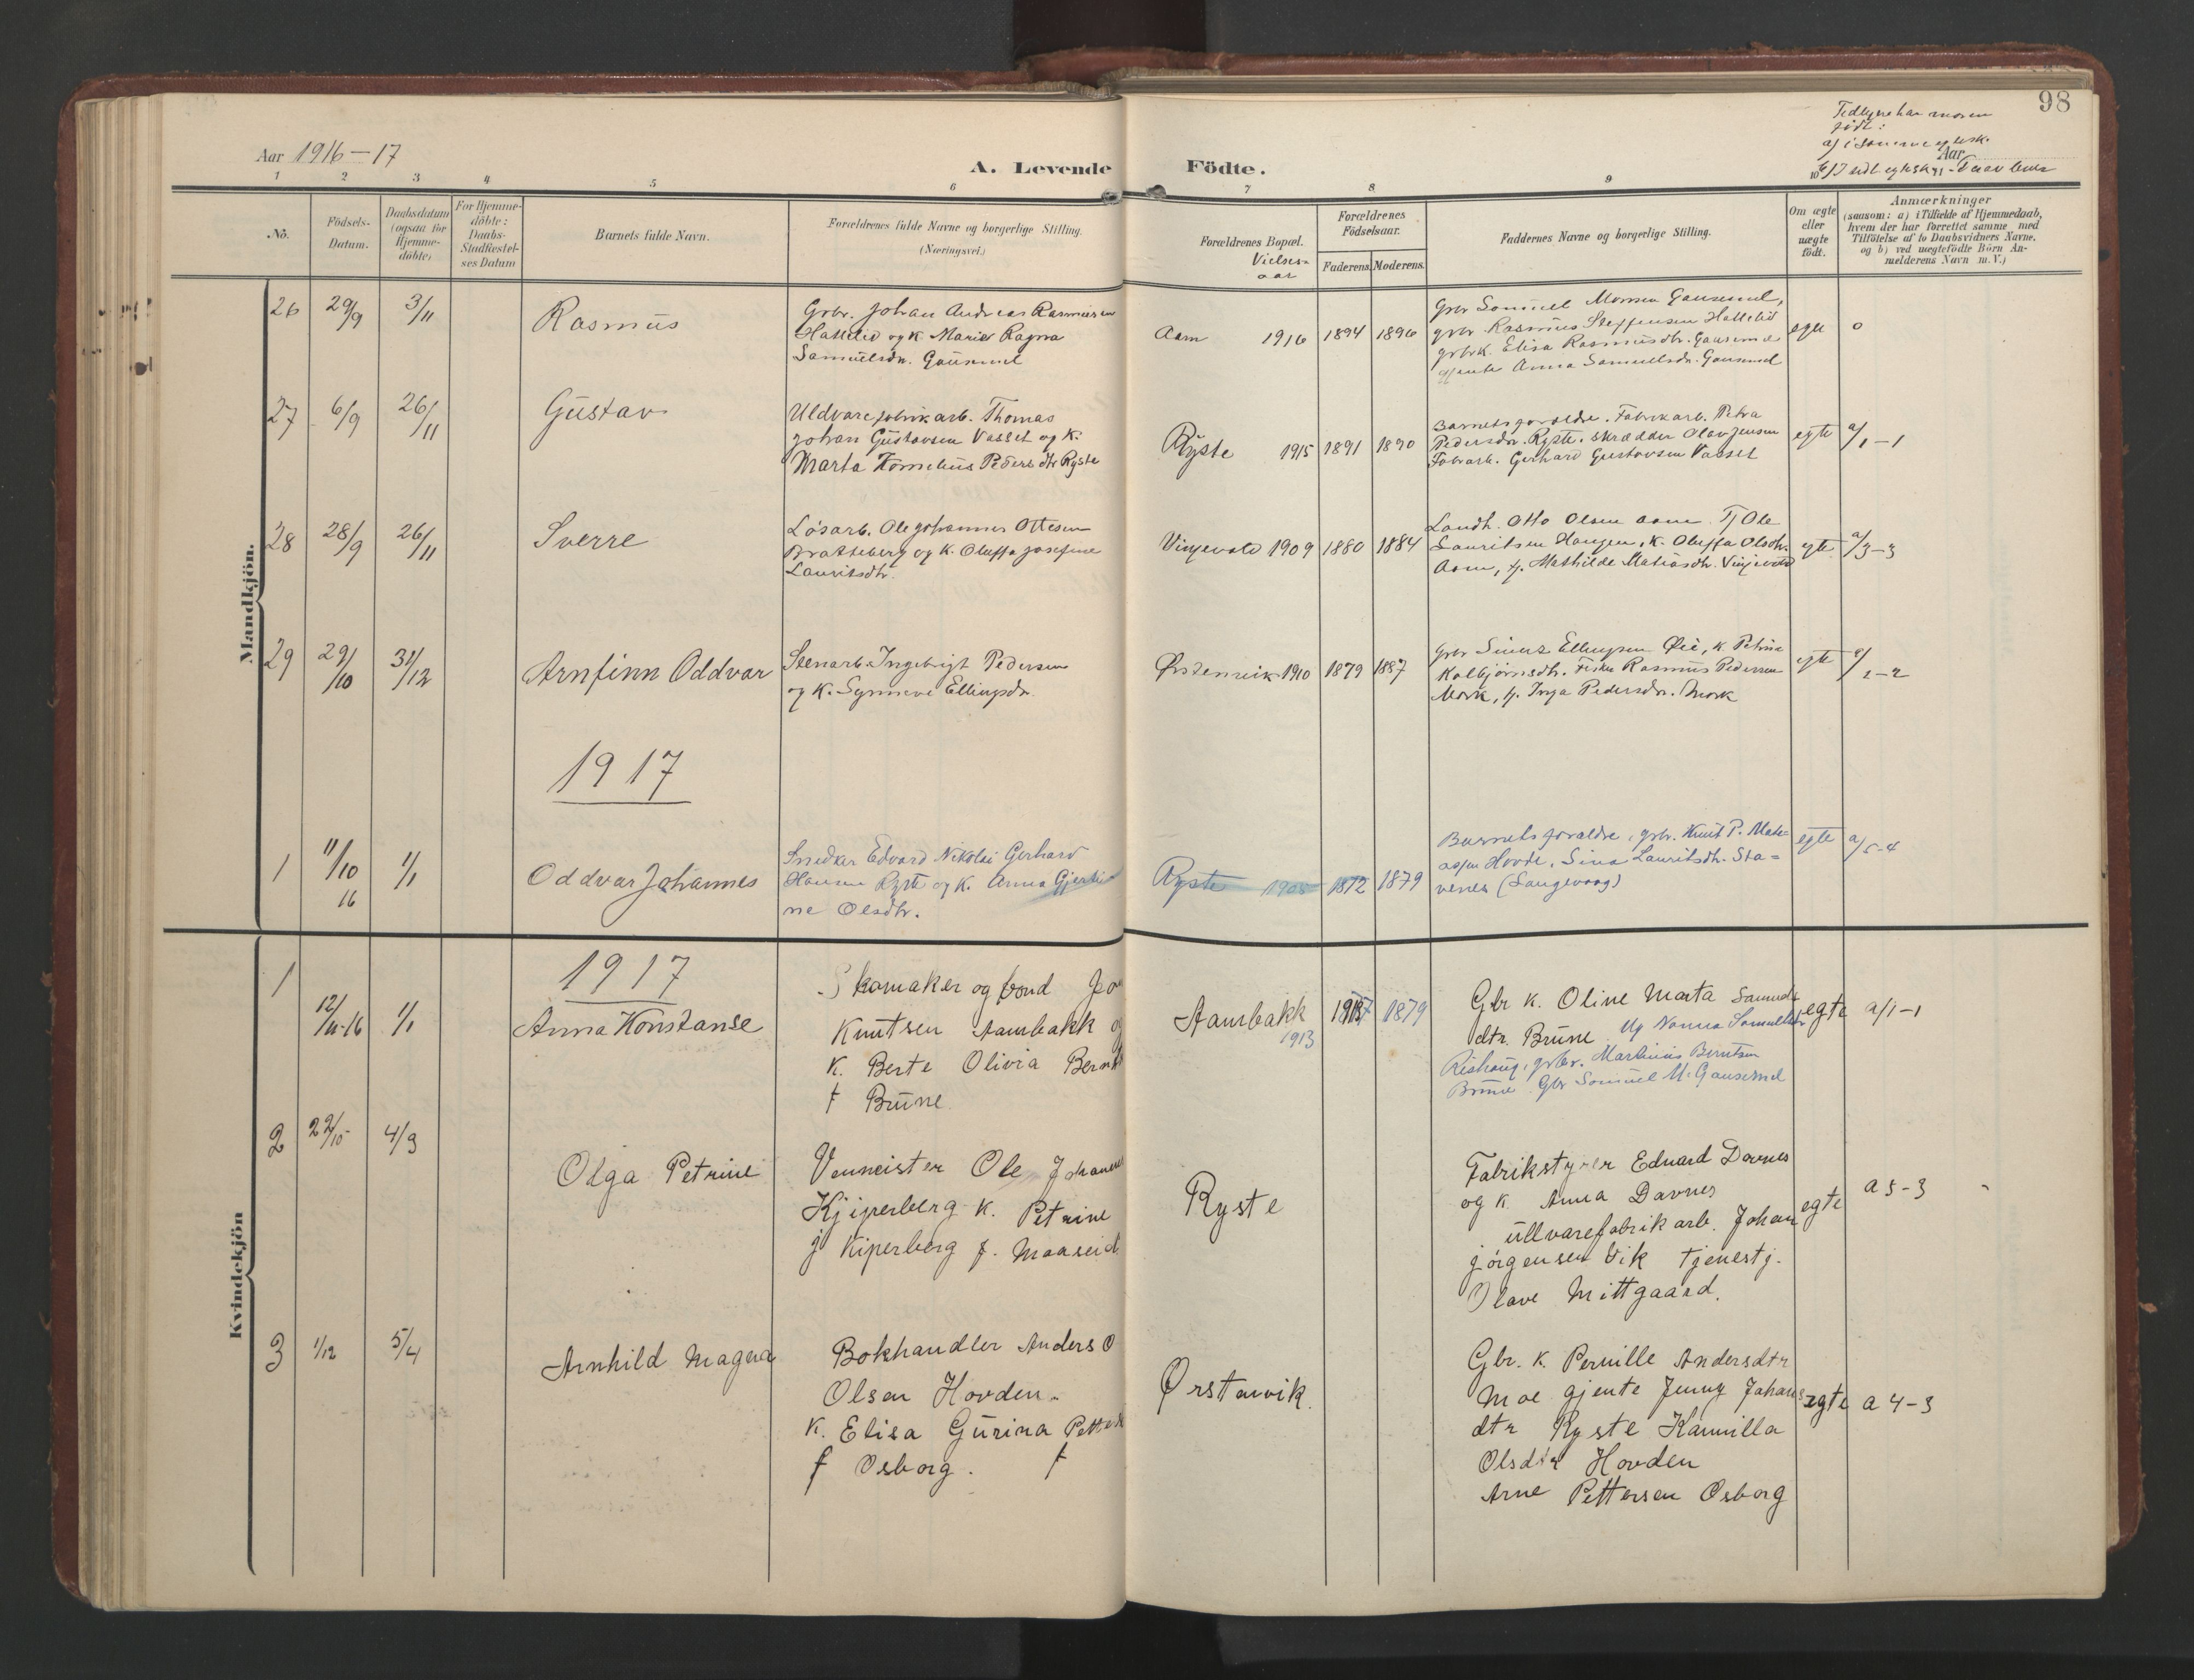 98
Aar 1916–17
A. Levende Födte.
Tidligere har moren
født:
a) i samme egtesk.
Aar
1 2 3 4 5 6 7 8 9 10 11
No.
Födsels-
Datum.
Daabsdatum
(ogsaa for
Hjemme-
döbte)
For Hjemme-
döbte:
Daabs-
Stadfæstel-
ses Datum
Barnets fulde Navn.
Forældrenes fulde Navne og borgerlige Stilling.
(Næringsvei.)
Forældrenes Bopæl.
Vielses-
aar
Forældrenes
Födselsaar.
Faderens. Moderens.
Faddernes Navne og borgerlige Stilling.
Om ægte
eller
uægte
födt.
Anmærkninger
(saasom: a) i Tilfælde af Hjemmedaab,
hvem der har forrettet samme med
Tilföielse af to Daabsvidners Navne,
og b) ved uægtefödte Börn An-
melderens Navn m. V.)
Mandkjön.
26 29/9 3/11 Rasmus
Grbr. Johan Andreas Rasmussen
Hatlelid og k. Marie Ragna
Samuelsdr. Gausemel
Aam 1916 1894 1896
Grbr Samuel Monsen Gausemel,
grbr. Rasmus Steffensen Hatlelid
grbr.k. Elisa Rasmusdtr. Gausemel
gjente Anna Samuelsdr. Gausemel
egte 0
27 6/9 26/11 Gustav
Uldvarefabrikarb. Thomas
Johan Gustavsen Vasset og k.
Marta Kornelius Pedersdtr Ryste
Ryste 1915 1891 1890
Barnets foreldre. Fabrikarb. Petra
Pedersdr. Ryste. skrædder Olav Jensen
Fabrarb. Gerhard Gustavsen Vasset
egte a/1–1
28 28/9 26/11 Sverre
Løsarb. Ole Johannes Ottesen
Bratteberg og k. Oluffa Josefine
Lauritsdtr.
Vinjevold 1909 1880 1884
Landh. Otto Olsen Aam. Tj Ole
Lauritsen Haugen, k. Oluffa Olsdtr.
Aam, tj. Mathilde Matiasdtr. Vinjevold
egte a/3–3
29 29/10 31/12 Arnfinn Oddvar
Stenarb. Ingebrigt Pedersen
og k. Synneve Ellingsdr.
Ørstenvik 1910 1879 1887
Grbr Sivert Ellingsen Øie, k. Petrina
Kolbjørnsdtr. Fisker Rasmus Pedersen
Mork, tj. Inga Pedersdr. Mork
egte a/2–2
1917
1 11/10 16 1/1 Oddvar Johannes
Snedker Edvard Nikolai Gerhard
Hansen Ryste og k. Anna Gjertine
Olsdtr.
Ryste 1905 1872 1879
Barnets foreldre, grbr. Knut P. Mate-
Hovde, Sina Lauritsdtr. Sta-
venes (Langevaag)
egte a/5–4
Kvindekjön
1917
1 12/11-16 1/1 Anna Konstanse
Skomaker og bond
Knutsen Aambakk og
k. Berte Olivia
f Brune.
Aambakk
1913
1879
Gbr k. Oline Marta Samuels
dtr. Brune. Ug Nanna Samuelsdtr
Rishaug, grbr. Martinus Berntsen
Brune Gbr Samuel M. Gausemel
egte a/1–1
2 22/10 4/3 Olga Petrine
Vevmeister Ole Johannes
Kjiperberg k. Petrine
J Kiperberg f. Maaseid
Ryste
Fabrikstyrer Edvard Davnes
og k. Anna Davnes
ullvarefabrikarb. Johan
Jörgensen Vik Tjenestj.
Olave Mittgaard.
egte a 5–3
3 1/12 5/4 Arnhild Magna
Bokhandler Anders O
Olsen Hovden.
k. Elisa Gurina
f Osborg. f
Ørstavik.
Gbr. k. Pernille Andersdtr
Moe gjente Jenny Johans
dtr Ryste Kamilla
Olsdtr Hovden
Arne Pettersen Osborg
egte a 4–3